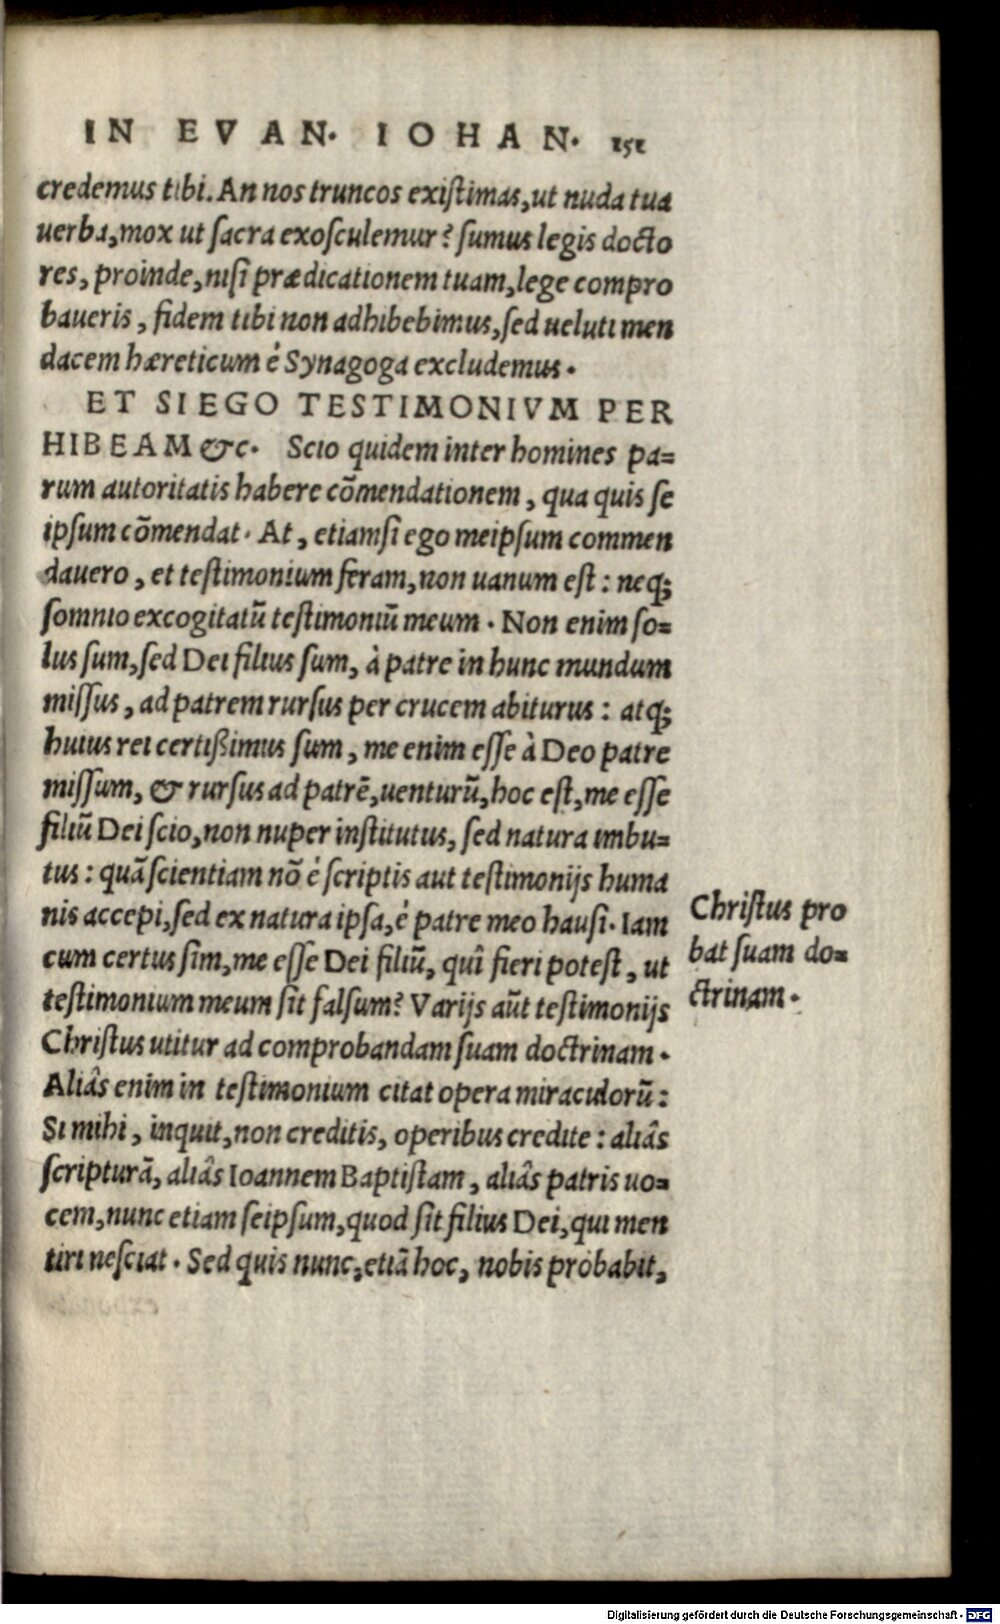 IN EVAN. IOHAN. 151
credemus tibi. An nos truncos existimas, ut nuda tua
uerba, mox ut sacra exosculemur? sumus legis docto
res, proinde, nisi prædicationem tuam, lege compro
baueris, fidem tibi non adhibebimus, sed ueluti men
dacem hæreticum è Synagoga excludemus.
ET SI EGO TESTIMONIVM PER
HIBEAM &c. Scio quidem inter homines pa=
rum autoritatis habere cõmendationem, qua quis se
ipsum cõmendat. At, etiamsi ego meipsum commen
dauero, et testimonium feram, non uanum est: neq;
somnio excogitatũ testimoniũ meum. Non enim so=
lus sum, sed Dei filius sum, à patre in hunc mundum
missus, ad patrem rursus per crucem abiturus: atq;
huius rei certißimus sum, me enim esse à Deo patre
missum, & rursus ad patrẽ, uenturũ, hoc est, me esse
filiũ Dei scio, non nuper institutus, sed natura imbu=
tus: quã scientiam nõ è scriptis aut testimonijs huma
nis accepi, sed ex natura ipsa, è patre meo hausi. Iam
cum certus sim, me esse Dei filiũ, quî fieri potest, ut
testimonium meum sit falsum? Varijs aũt testimonijs
Christus utitur ad comprobandam suam doctrinam.
Aliâs enim in testimonium citat opera miraculorũ:
Si mihi, inquit, non creditis, operibus credite: aliâs
scripturã, aliâs Ioannem Baptistam, aliâs patris uo=
cem, nunc etiam seipsum, quod sit filius Dei, qui men
tiri nesciat. Sed quis nunc, etiã hoc, nobis probabit,
Christus pro
bat suam do=
ctrinam.
Digitalisierung gefördert durch die Deutsche Forschungsgemeinschaft - DFG